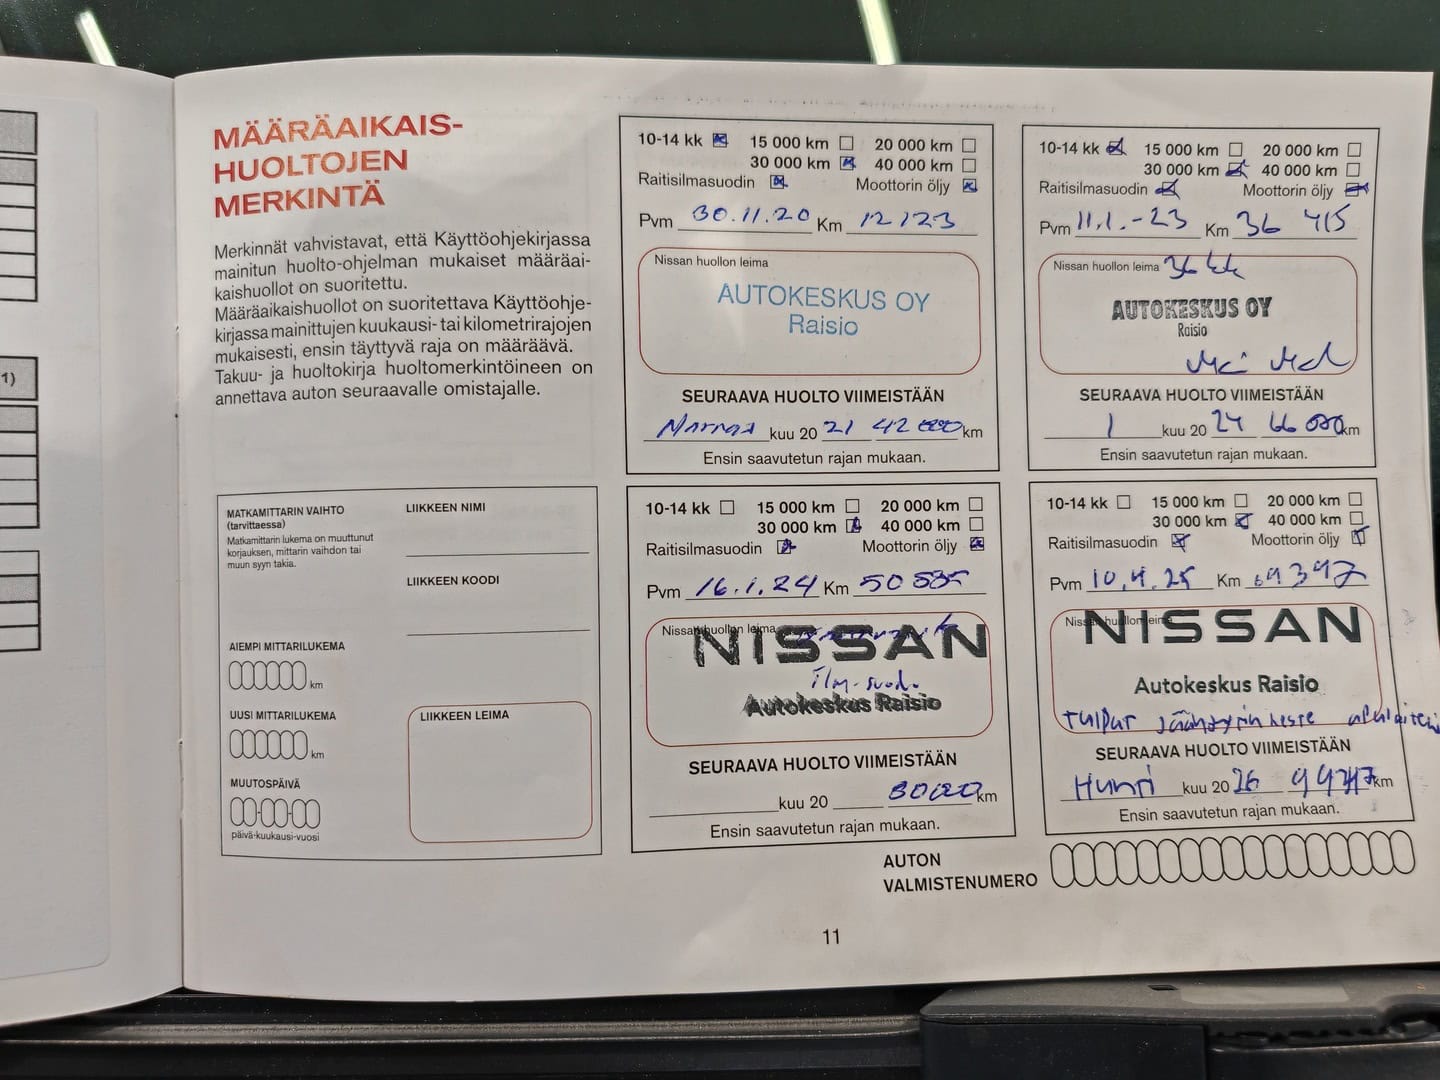 1)
MÄÄRÄAIKAIS-
HUOLTOJEN
MERKINTÄ
Merkinnät vahvistavat, että Käyttöohjekirjassa
mainitun huolto-ohjelman mukaiset määräai-
kaishuollot on suoritettu.
Määräaikaishuollot on suoritettava Käyttöohje-
kirjassa mainittujen kuukausi- tai kilometrirajojen
mukaisesti, ensin täyttyvä raja on määräävä.
Takuu- ja huoltokirja huoltomerkintöineen on
annettava auton seuraavalle omistajalle.
MATKAMITTARIN VAIHTO
(tarvittaessa)
Matkamittarin lukema on muuttunut
korjauksen, mittarin vaihdon tai
muun syyn takia.
LIIKKEEN NIMI
LIIKKEEN KOODI
AIEMPI MITTARILUKEMA
km
UUSI MITTARILUKEMA
km
MUUTOSPÄIVÄ
päivä-kuukausi-vuosi
LIIKKEEN LEIMA
10-14 kk 15 000 km 20 000 km
30 000 km 40 000 km
Raitisilmasuodin Moottorin öljy
Pvm 30.11.20 Km 12123
Nissan huollon leima
AUTOKESKUS OY
Raisio
SEURAAVA HUOLTO VIIMEISTÄÄN
Marras kuu 20 21 42 000 km
Ensin saavutetun rajan mukaan.
10-14 kk 15 000 km 20 000 km
30 000 km 40 000 km
Raitisilmasuodin Moottorin öljy
Pvm 11.1.-23 Km 36 415
Nissan huollon leima 36 kk
AUTOKESKUS OY
Raisio
SEURAAVA HUOLTO VIIMEISTÄÄN
1 kuu 20 24 66 000 km
Ensin saavutetun rajan mukaan.
10-14 kk 15 000 km 20 000 km
30 000 km 40 000 km
Raitisilmasuodin Moottorin öljy
Pvm 16.1.24 Km 50 585
Nissan huollon leima
NISSAN
ilm-suod.
Autokeskus Raisio
SEURAAVA HUOLTO VIIMEISTÄÄN
kuu 20 80000 km
Ensin saavutetun rajan mukaan.
10-14 kk 15 000 km 20 000 km
30 000 km 40 000 km
Raitisilmasuodin Moottorin öljy
Pvm 10.4.25 Km 69397
Nissan huollon leima
NISSAN
Autokeskus Raisio
tulpat jäähdytinneste
SEURAAVA HUOLTO VIIMEISTÄÄN
Huhti kuu 20 26 km
Ensin saavutetun rajan mukaan.
AUTON
VALMISTENUMERO
11